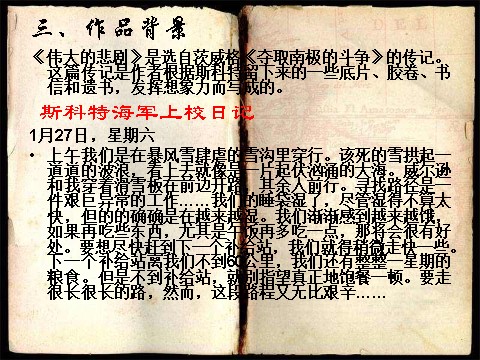 三、作品背景
《伟大的悲剧》是选自茨威格《夺取南极的斗争》的传记。
这篇传记是作者根据斯科特留下来的一些底片、胶卷、书
信和遗书，发挥想象力而写成的。
斯科特海军上校日记
1月27日，星期六
• 上午我们是在暴风雪肆虐的雪沟里穿行。该死的雪拱起一
道道的波浪，看上去就像是一片起伏汹涌的大海。威尔逊
和我穿着滑雪板在前边开路，其余人前行。寻找路径是一
件艰巨异常的工作……我们的睡袋湿了，尽管湿得不算太
快，但的的确确是在越来越湿。我们渐渐感到越来越饿，
如果再吃些东西，尤其是午饭再多吃一点，那将会很有好
处。要想尽快赶到下一个补给站，我们就得稍微走快一些。
下一个补给站离我们不到60公里，我们还有整整一星期的
粮食。但是不到补给站，就别指望真正地饱餐一顿。要走
很长很长的路，然而，这段路程又无比艰辛……